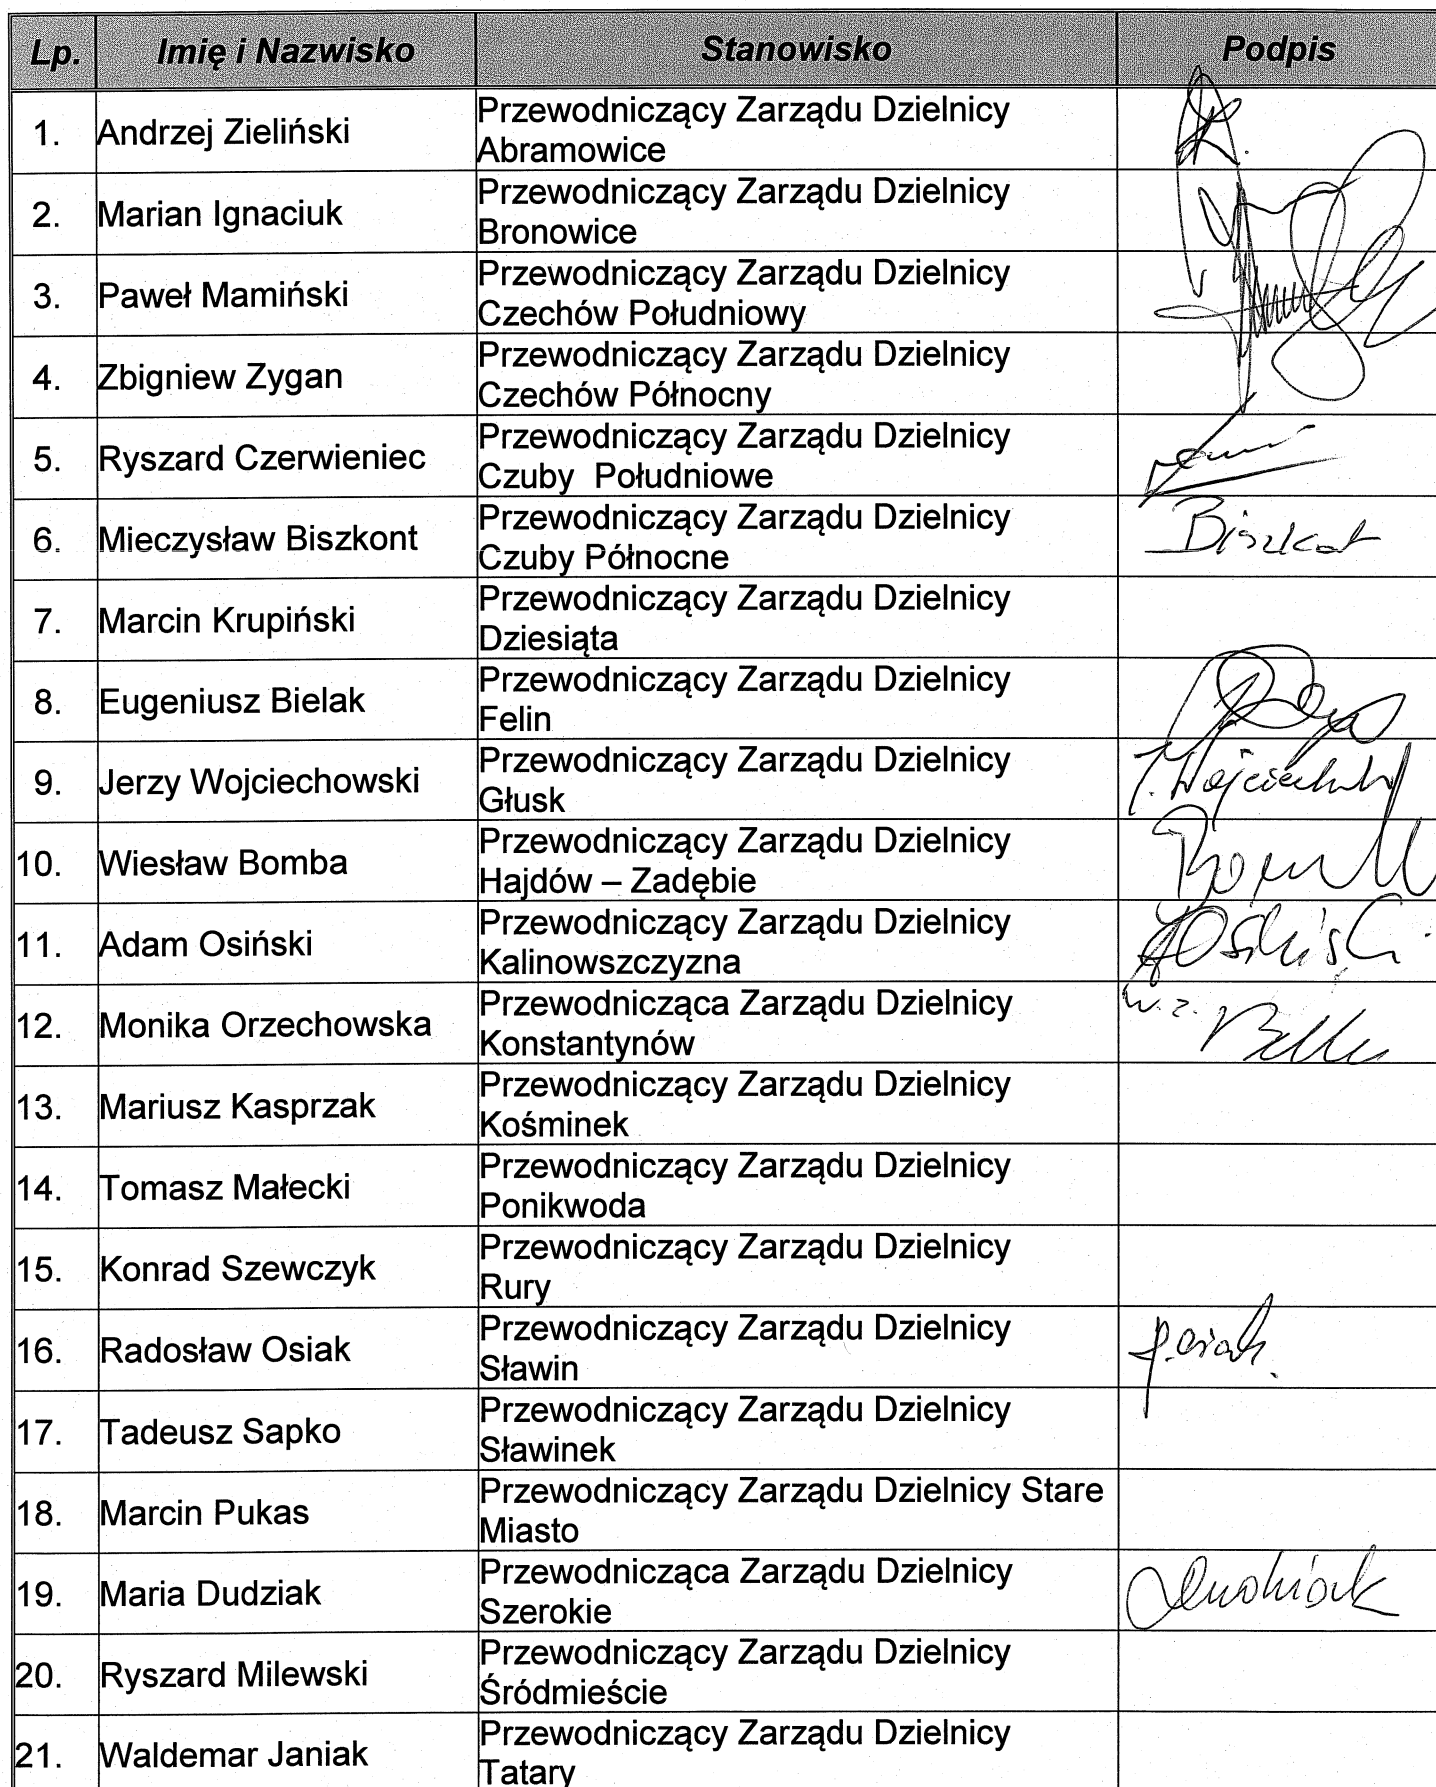 Lp. Imię i Nazwisko Stanowisko Podpis
1. Andrzej Zieliński Przewodniczący Zarządu Dzielnicy
Abramowice
2. Marian Ignaciuk Przewodniczący Zarządu Dzielnicy
Bronowice
3. Paweł Mamiński Przewodniczący Zarządu Dzielnicy
Czechów Południowy
4. Zbigniew Zygan Przewodniczący Zarządu Dzielnicy
Czechów Północny
5. Ryszard Czerwieniec Przewodniczący Zarządu Dzielnicy
Czuby Południowe
6. Mieczysław Biszkont Przewodniczący Zarządu Dzielnicy
Czuby Północne
7. Marcin Krupiński Przewodniczący Zarządu Dzielnicy
Dziesiąta
8. Eugeniusz Bielak Przewodniczący Zarządu Dzielnicy
Felin
9. Jerzy Wojciechowski Przewodniczący Zarządu Dzielnicy
Głusk
10. Wiesław Bomba Przewodniczący Zarządu Dzielnicy
Hajdów – Zadębie
11. Adam Osiński Przewodniczący Zarządu Dzielnicy
Kalinowszczyzna
12. Monika Orzechowska Przewodnicząca Zarządu Dzielnicy w.z.
Konstantynów
13. Mariusz Kasprzak Przewodniczący Zarządu Dzielnicy
Kośminek
14. Tomasz Małecki Przewodniczący Zarządu Dzielnicy
Ponikwoda
15. Konrad Szewczyk Przewodniczący Zarządu Dzielnicy
Rury
16. Radosław Osiak Przewodniczący Zarządu Dzielnicy
Sławin
17. Tadeusz Sapko Przewodniczący Zarządu Dzielnicy
Sławinek
18. Marcin Pukas Przewodniczący Zarządu Dzielnicy Stare
Miasto
19. Maria Dudziak Przewodnicząca Zarządu Dzielnicy
Szerokie
20. Ryszard Milewski Przewodniczący Zarządu Dzielnicy
Śródmieście
21. Waldemar Janiak Przewodniczący Zarządu Dzielnicy
Tatary